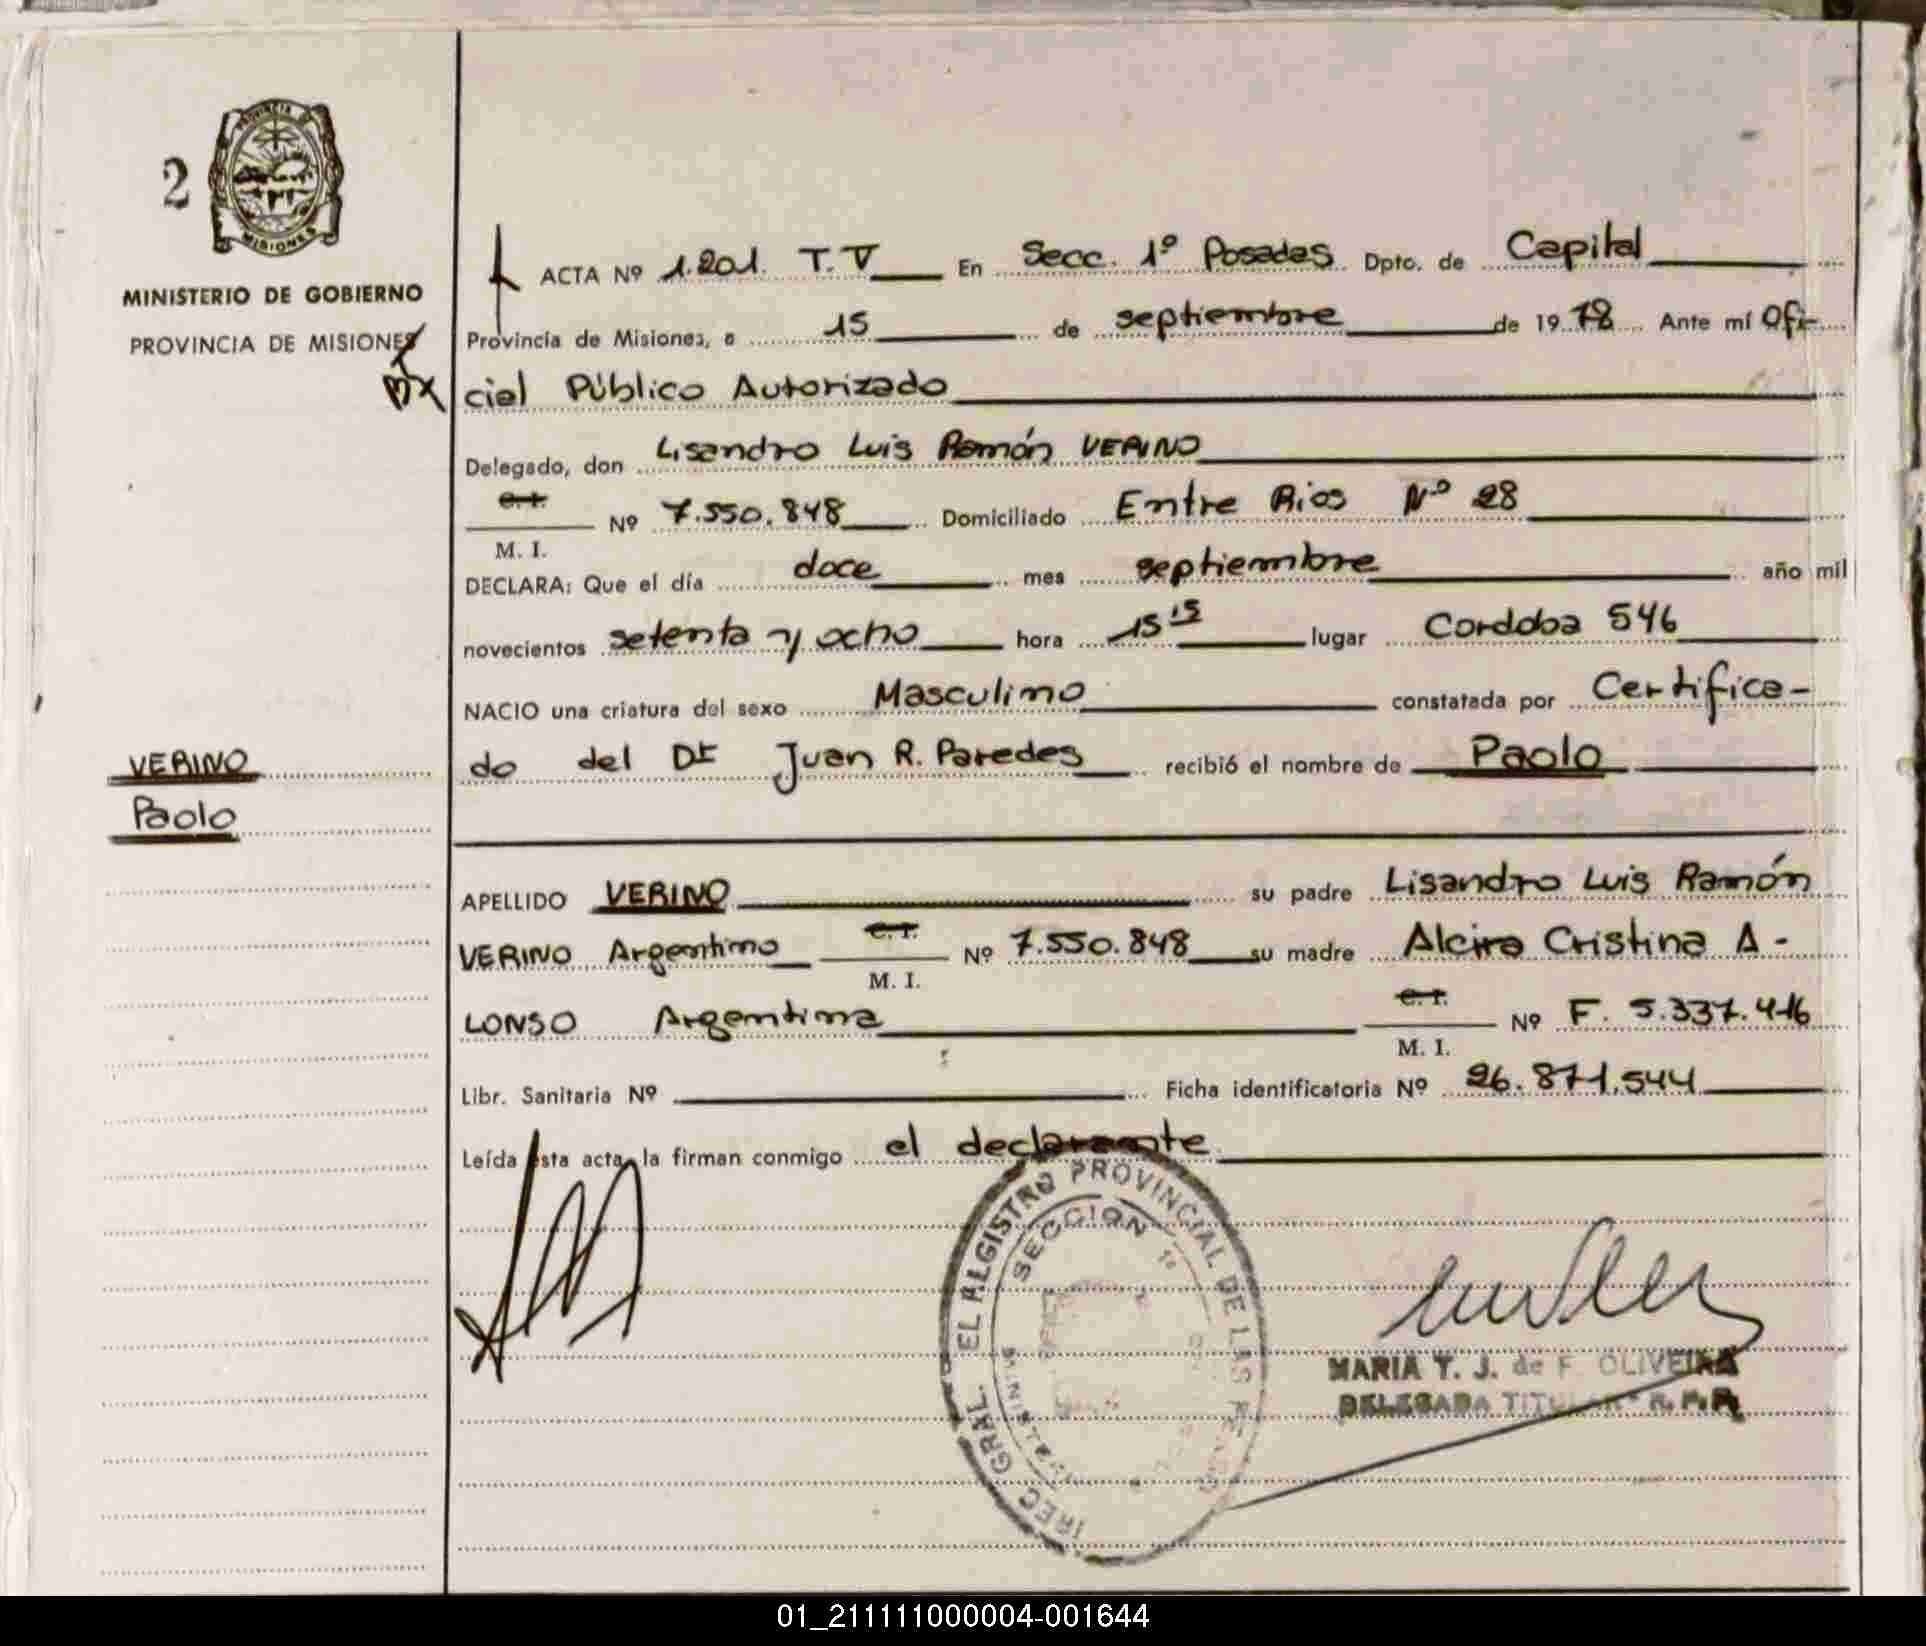 2
PROVINCIA DE
MISIONES
MINISTERIO DE GOBIERNO
PROVINCIA DE MISIONES
ACTA Nº 1.201. T. V En Secc. 1º Posadas Dpto. de Capital
Provincia de Misiones, a 15 de septiembre de 1978 Ante mí Ofi-
cial Público Autorizado
Delegado, don Lisandro Luis Ramón VERINO
C. I.
Nº 7.550.848 Domiciliado Entre Rios Nº 28
M. I.
DECLARA: Que el día doce mes septiembre año mil
novecientos setenta y ocho hora 15 15 lugar Cordoba 546
NACIO una criatura del sexo Masculino constatada por Certifica-
do del Dr Juan R. Paredes recibió el nombre de Paolo
VERINO
Paolo
APELLIDO VERINO su padre Lisandro Luis Ramón
VERINO Argentino C. I. Nº 7.550.848 su madre Alcira Cristina A-
M. I.
LONSO Argentina C. I. Nº F. 5.337.416
M. I.
Libr. Sanitaria Nº Ficha identificatoria Nº 26.871.544
Leída esta acta, la firman conmigo el declarante
GRAL. EL REGISTRO PROVINCIAL DE LAS
SECCION 1º
MARIA T. J. de F. OLIVEIRA
DELEGADA TITULAR R. P. P.
01_211111000004-001644